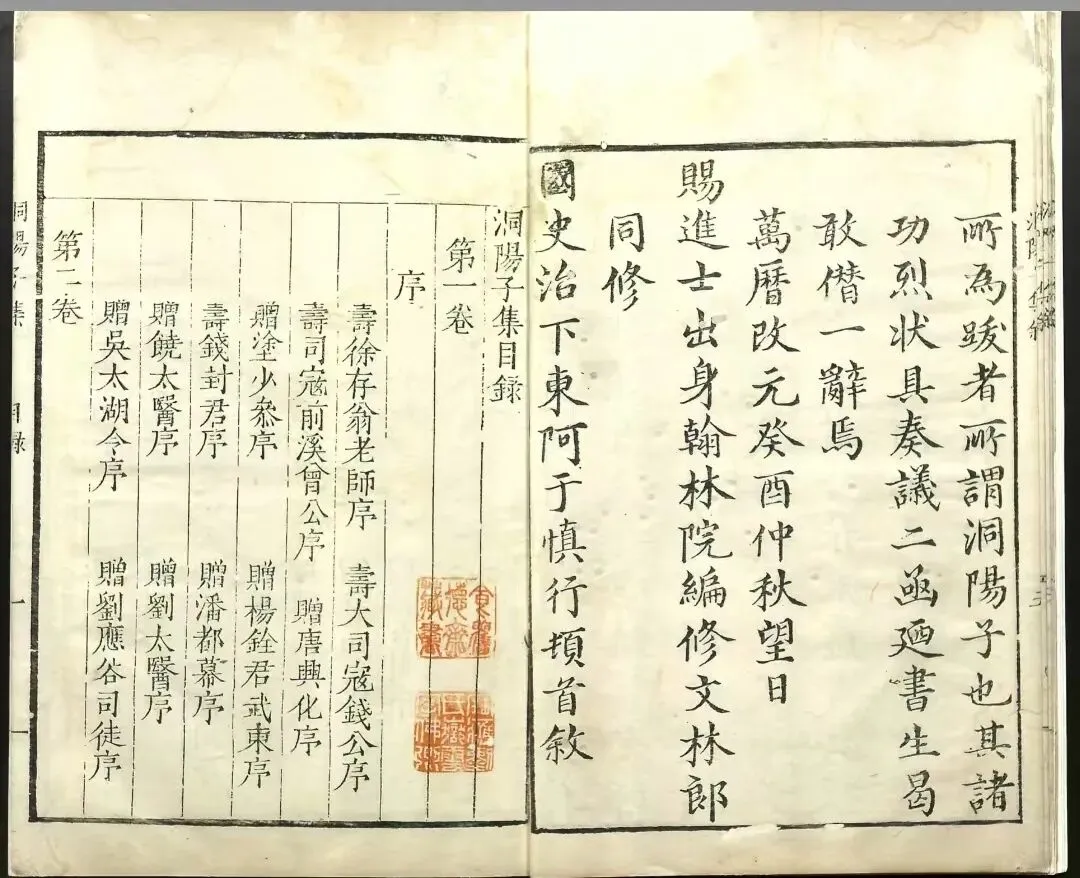 所為跋者所謂洞陽子也其諸
功烈狀具奏議二亟廼書生曷
敢僭一辭焉
萬曆改元癸酉仲秋望日
賜進士出身翰林院編修文林郎
同修
國史治下東阿于慎行頓首敘
洞陽子集目録
第一卷
序
壽徐存翁老師序 壽大司寇錢公序
壽司寇前溪曾公序 贈唐興化序
贈塗少叅序 贈楊銓君武東序
壽錢封君序 贈潘都幕序
贈饒太醫序 贈劉太醫序
贈吳太湖令序 贈劉應谷司徒序
第二卷
洞陽子集 目録 一